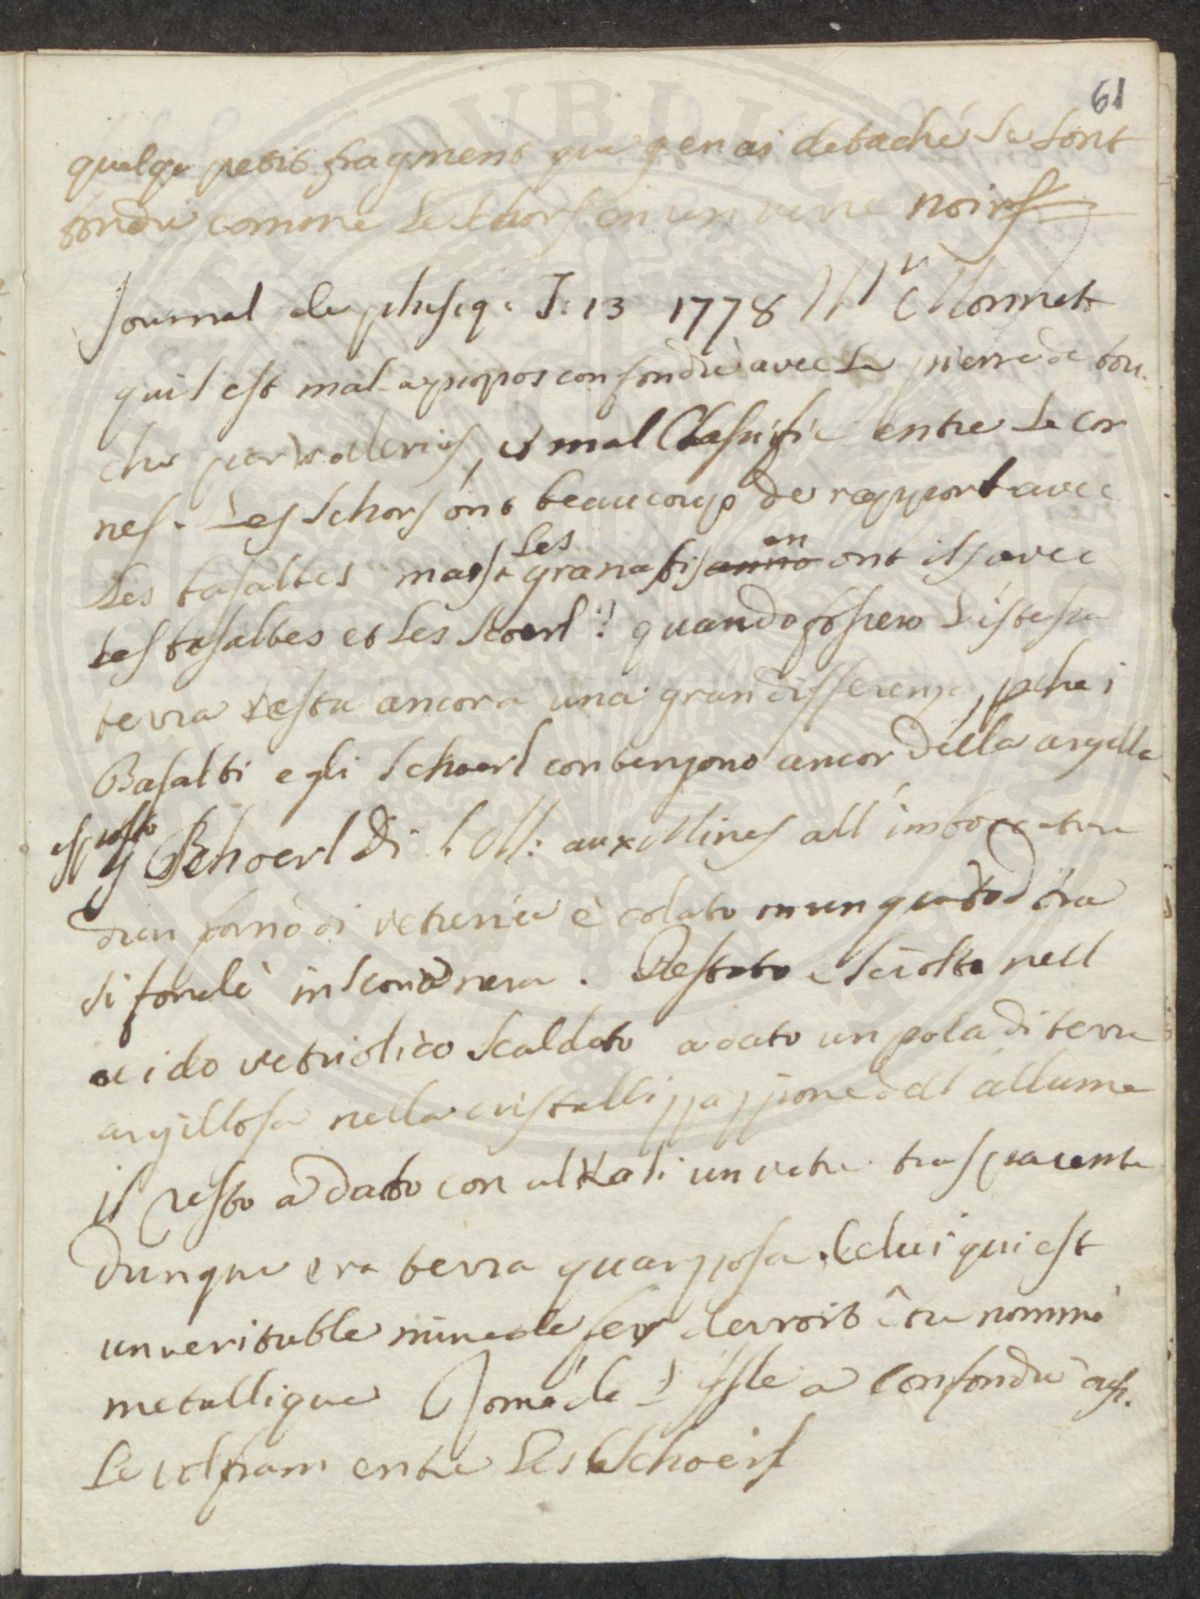 61
quelqe petit fragment que g en ai detaché se sont
fondu comme Le schorl en un verre noir
Journal de phisiq: T: 13 1778 Mr Monnet
qu il est mal apropos confondu avec La pierre de tou
che par walerius, et mal Classifie entre Le cor
nes. Les schorl ont beaucoup de rapport avec
Les basaltes mais Les granasti en ont ils avec
Les basaltes et Les scoerl? quando fossero L istessa
terra resta ancora una gran differenza, pche i
Basalti e gli schoerl contengono ancor della argilla
esposto Schoerl di aux Mines all imboccatura
d un forno di vetreria è colato in un quarto d óra
si fondè in scoria nera. Pestato e sciolto nell
acido vetriolico scaldato a dato un pola di terra
argillosa nella cristallizzazzione dell allume
il resto a dato con alkali un vetro trasparente
Dunque era terra quarzzosa. Celui qui est
un veritable mine de fer devroit être nommé
metallique Romé de L isle a confondu
Le volfram entre Les Schoerl